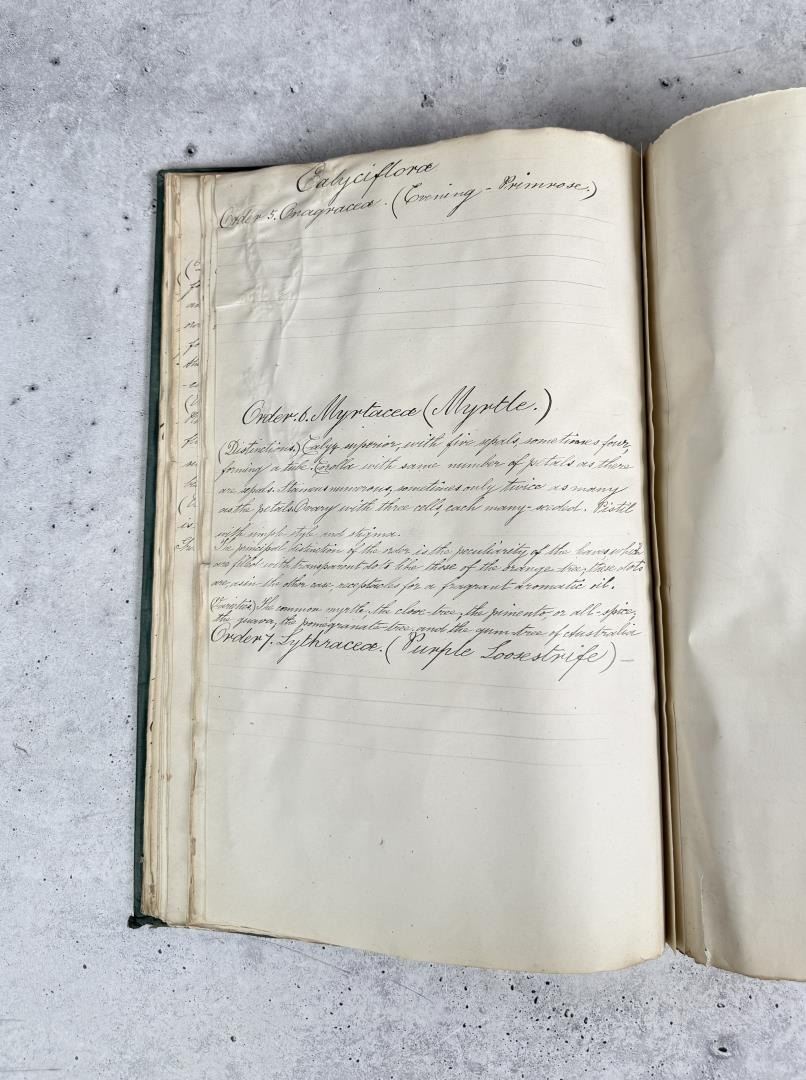 Calycifloræ
Order 5. Onagraceæ. (Evening-Primrose.)
Order. 6. Myrtaceæ (Myrtle.)
(Distinctions.) Calyx superior, with five sepals, sometimes four,
forming a tube. Corolla with same number of petals as there
are sepals. Stamens numerous, sometimes only twice as many
as the petals. Ovary with three cells, each many-seeded. Pistil
with simple style and stigma.
The principal distinction of the order is the peculiarity of the leaves which
are filled with transparent dots like those of the orange-tree, these dots
are, as in the other case, receptacles for a fragrant aromatic oil.
(Varieties.) The common myrtle, the clove-tree, the pimento, or all-spice,
the guava, the pomegranate-tree, and the gum-tree of Australia
Order 7. Lythraceæ. (Purple Loosestrife)—